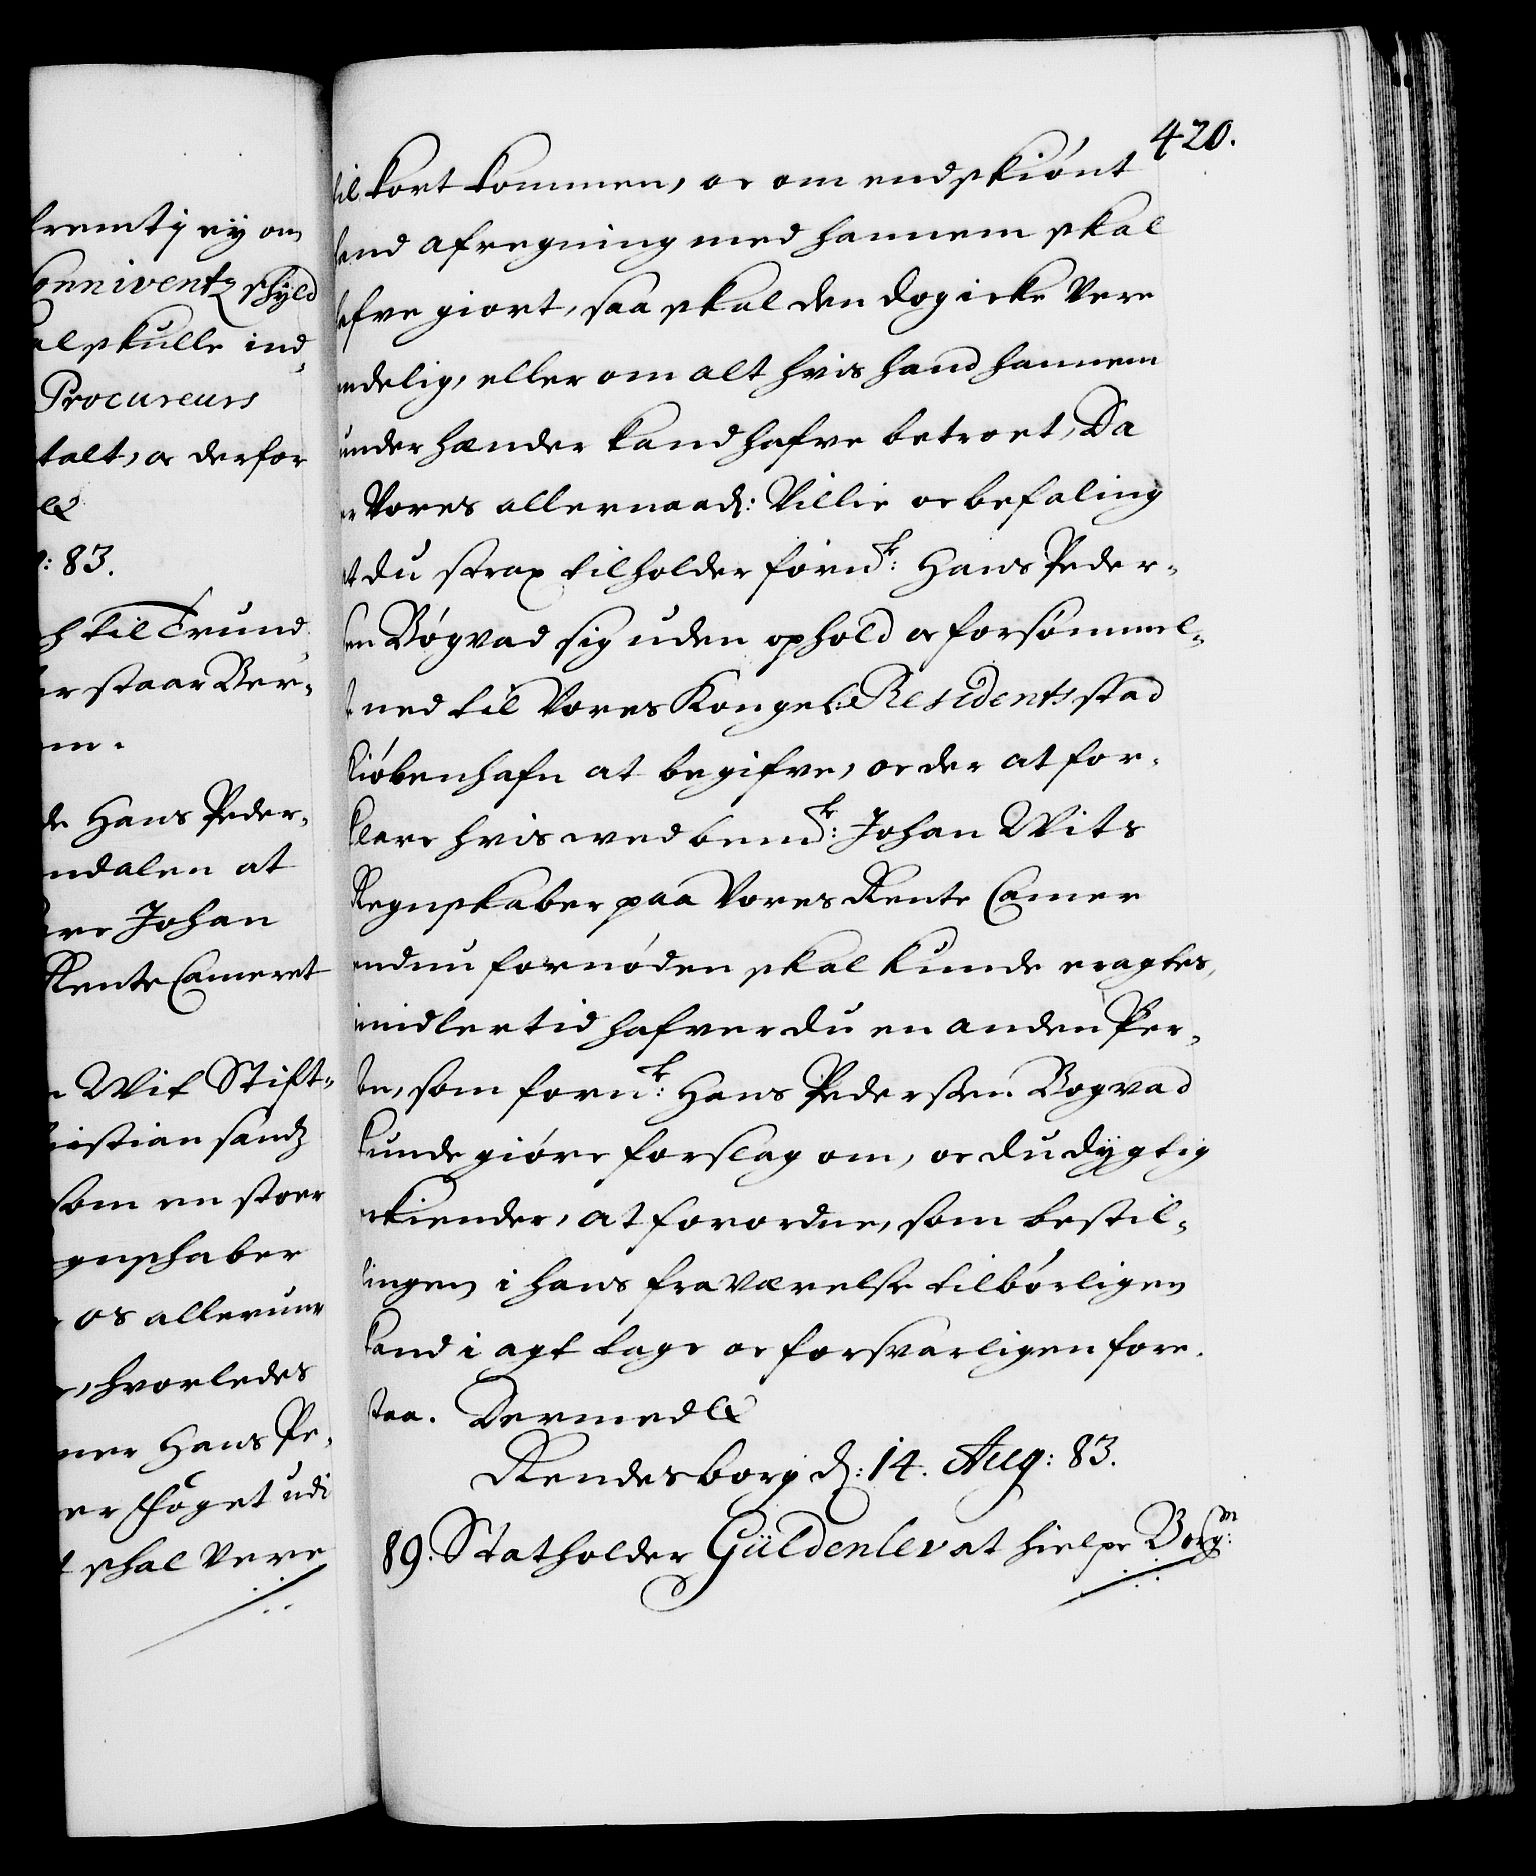 fremtj ey om
Conniventz schÿld
al skulle ind,
Procureurs
talt, oc derfor
etc
: 83.
h til Trund
er staar Ber-
em.
de Hans Peder,
ndalen at
ere Johan
Rente Cameret
Wit Stift-
istian sandz
som en stoer
gnschaber
os allerund
, hvorledes
ner Hans Pe,
er Foget udi
t schal Vere
420.
til kort kommen, oc om endskiønt
hand afregning med hannem skal
hafve giort, saa skal den dog icke Vere
endelig, eller om alt hvis hand hannem
under hænder kand hafve betroet, Da
er Vores allernaad: Villie oc befaling
at du strax tilholder förn: Hans Peder-
sen Bögvad sig uden ophold oc forsømmel-
se ned til Vores Kongel: Residents stad
Kiøbenhafn at begifve, oc der at for-
klare hvis ved bem: Johan Wits
Regnskaber paa Vores Rente Camer
endnu fornøden skal kunde eragtes,
imidlertid hafver du en anden Per-
son, som forn: Hans Pedersen Bogvad
kunde giøre forslag om, oc du dygtig
erkiender, at forordne, som bestil-
lingen i hans fraværelse tilbørligen
kand i agt tage oc forsvarligen fore-
staa. Dermed etc
Rendesborg d: 14. Aug: 83.
89. Statholder Güldenlev at hielpe Borg:m